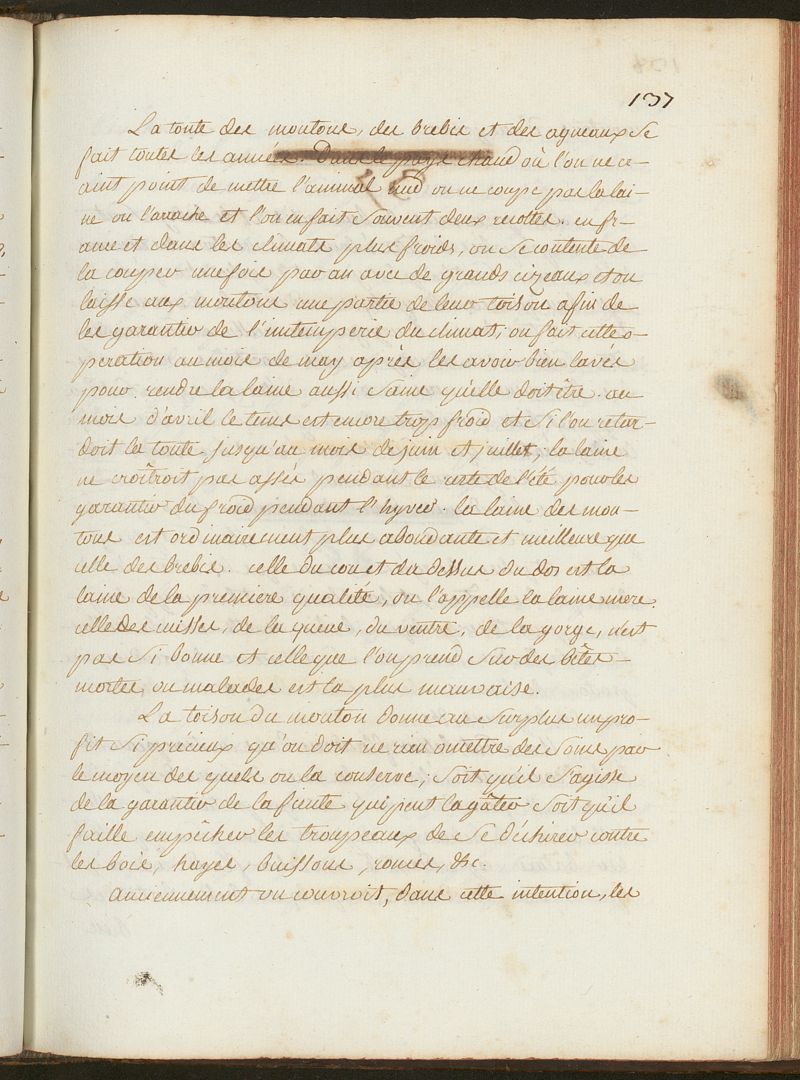 137
La tonte des moutons, des brebis et des agneaux se
fait toutes les années. Dans le pays chaud où l'on ne cr-
aint point de mettre l'animal nud on ne coupe pas la lai-
ne on l'arrache et l'on en fait souvent deux recoltes. en fr-
ance et dans les climats plus froids, on se contente de
la couper une fois par an avec de grands cizeaux et on
laisse aux moutons une partie de leur toison afin de
les garantir de l'intemperie du climat, on fait cette o-
peration au mois de may après les avoir bien lavés
pour rendre la laine aussi saine qu'elle doit être. au
mois d'avril le tems est encore trop froid et si l'on retar-
doit la tonte jusqu'au mois de juin et juillet, la laine
ne croîtroit pas assés pendant le reste de l'été pour les
garantir du froid pendant l'hyver. la laine des mou-
tons est ordinairement plus abondante et meilleure que
celle des brebis. celle du cou et du dessus du dos est la
laine de la premiere qualité, on l'appelle la laine mere.
celle des cuisses, de la queue, du ventre, de la gorge, n'est
pas si bonne et celle que l'on prend sur des bêtes
mortes ou malades est la plus mauvaise.
La toison du mouton donne au surplus un pro-
fit si précieux qu'on doit ne rien omettre des soins par
le moyen des quels on la conserve, soit qu'il s'agisse
de la garantir de la fiente qui peut la gâter soit qu'il
faille empêcher les troupeaux de se déchirer contre
les bois, hayes, buissons, ronces, &c.
Anciennement on couvroit, dans cette intention, les